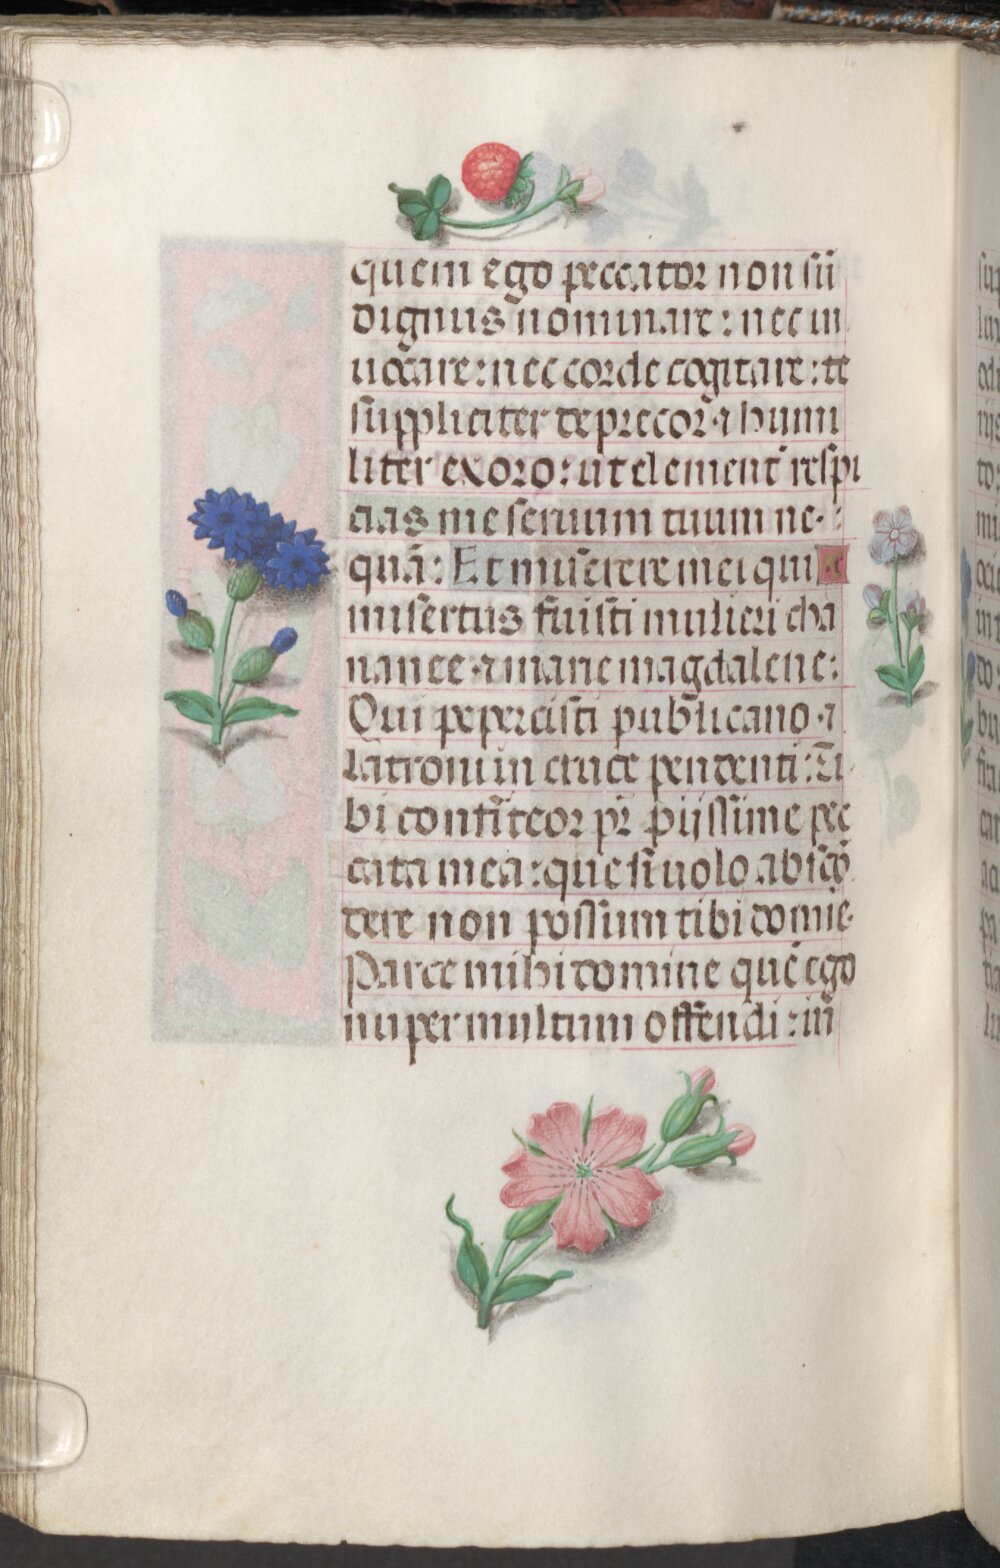 quem ego peccator non sũ
dignus nominare: nec in
uocare: nec corde cogitare: te
suppliciter deprecor ⁊ humi
liter exoro: ut clement̃ respi
cias me seruum tuum ne-
quã: Et miserere mei qui
misertus fuisti mulieri cha
nanee ⁊ marie magdalene:
Qui pepercisti publicano ⁊
latroni in cruce pendenti: Ti
bi confiteor pr̃ piissime pec
cata mea: que si uolo abscõ
dere non possum tibi domine
Parce mihi domine quẽ ego
nuper multum offendi: in